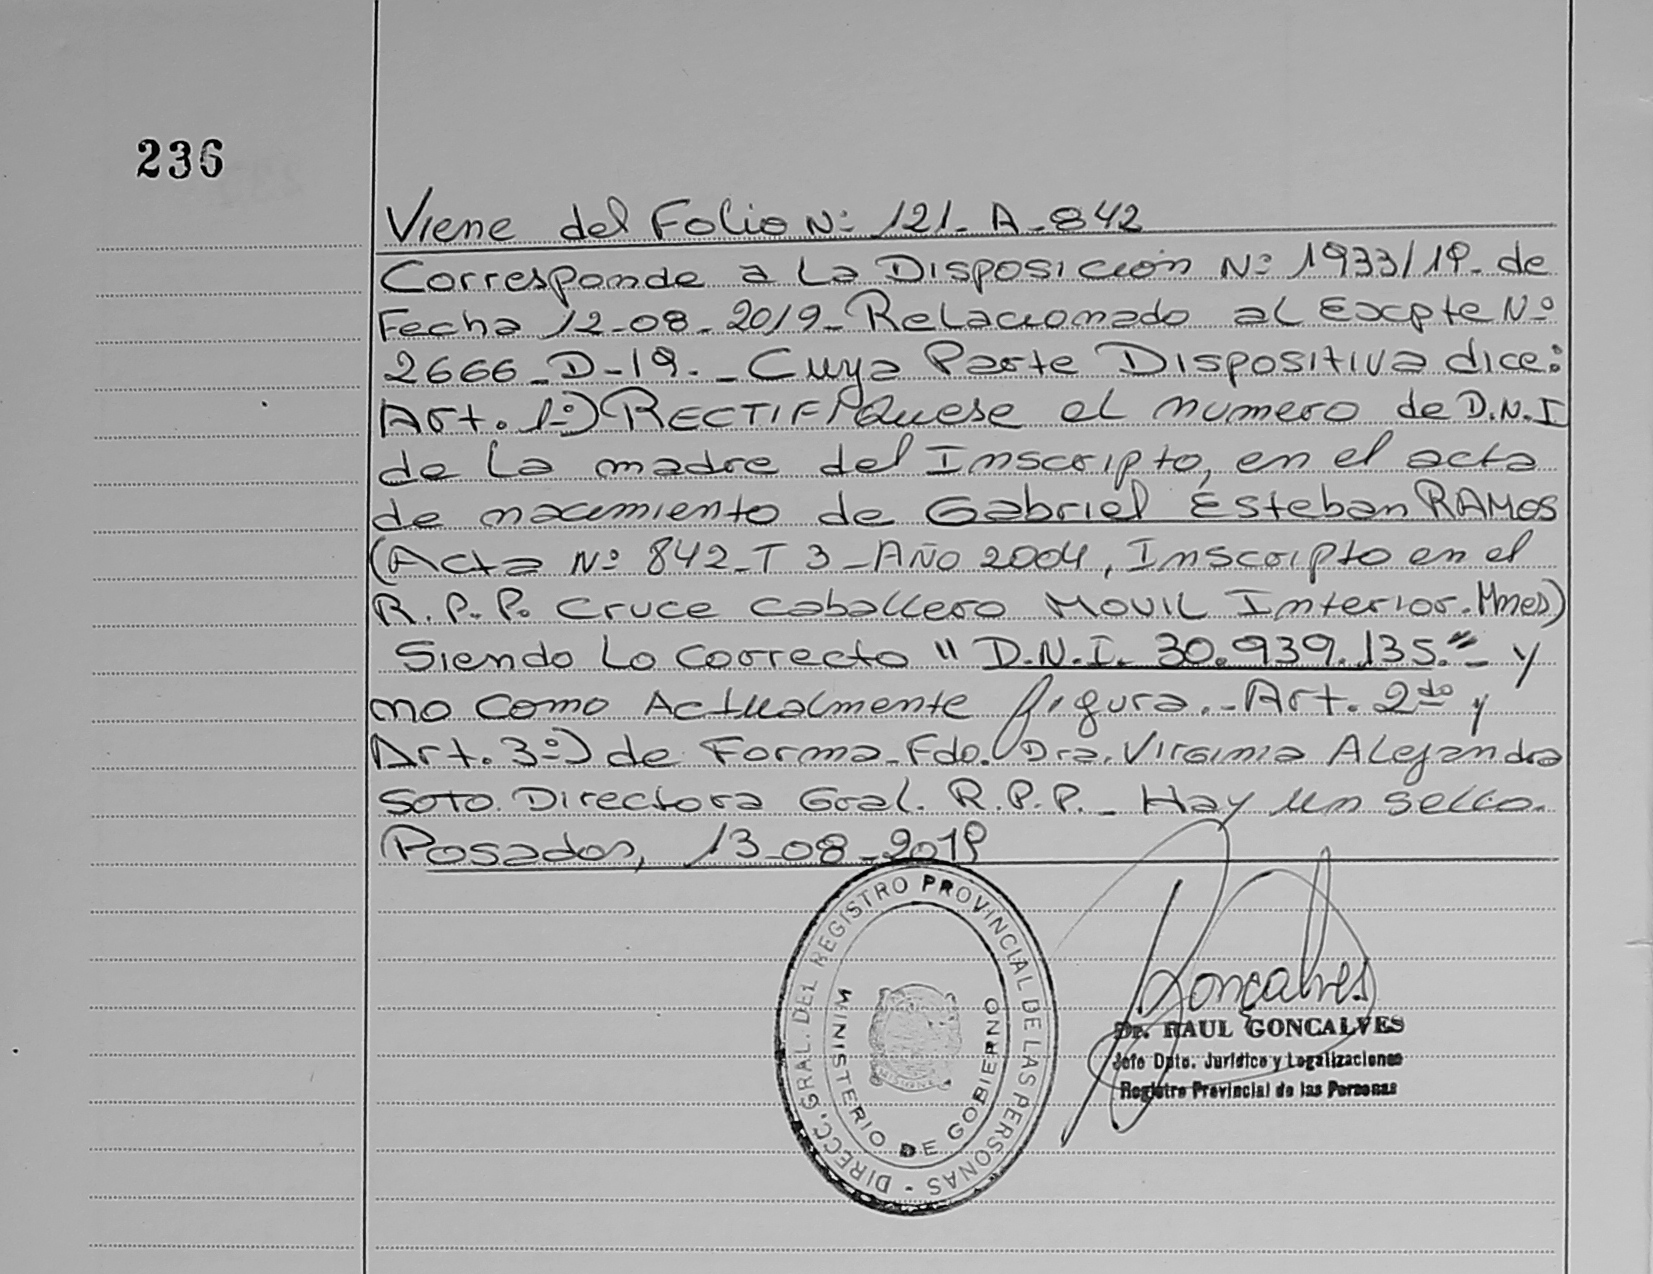 236
Viene del Folio Nº 121-A-842
Corresponde a La Disposición Nº 1933/19- de
Fecha 12-08-2019- Relacionado al Expte Nº
2666-D-19.- Cuya Parte Dispositiva dice:
Art. 1º) RECTIFIQuese el numero de D.N.I
de la madre del Inscripto, en el acta
de nacimiento de Gabriel Esteban RAMOS
(Acta Nº 842-T 3-AÑO 2004, Inscripto en el
R.P.P. Cruce Caballero MOVIL Interior. Mnes)
Siendo Lo Correcto "D.N.I. 30.939.135."- y
no como Actualmente figura.- Art. 2do y
Art. 3º) de Forma. Fdo. Dra. Virginia Alejandra
Soto. Directora Gral. R.P.P.- Hay un sello.
Posadas, 13-08-2019
DIRECC. GRAL. DEL REGISTRO PROVINCIAL DE LAS PERSONAS -
MINISTERIO DE GOBIERNO
MISIONES
Goncalves
Dr. RAUL GONCALVES
Jefe Dpto. Jurídico y Legalizaciones
Registro Provincial de las Personas